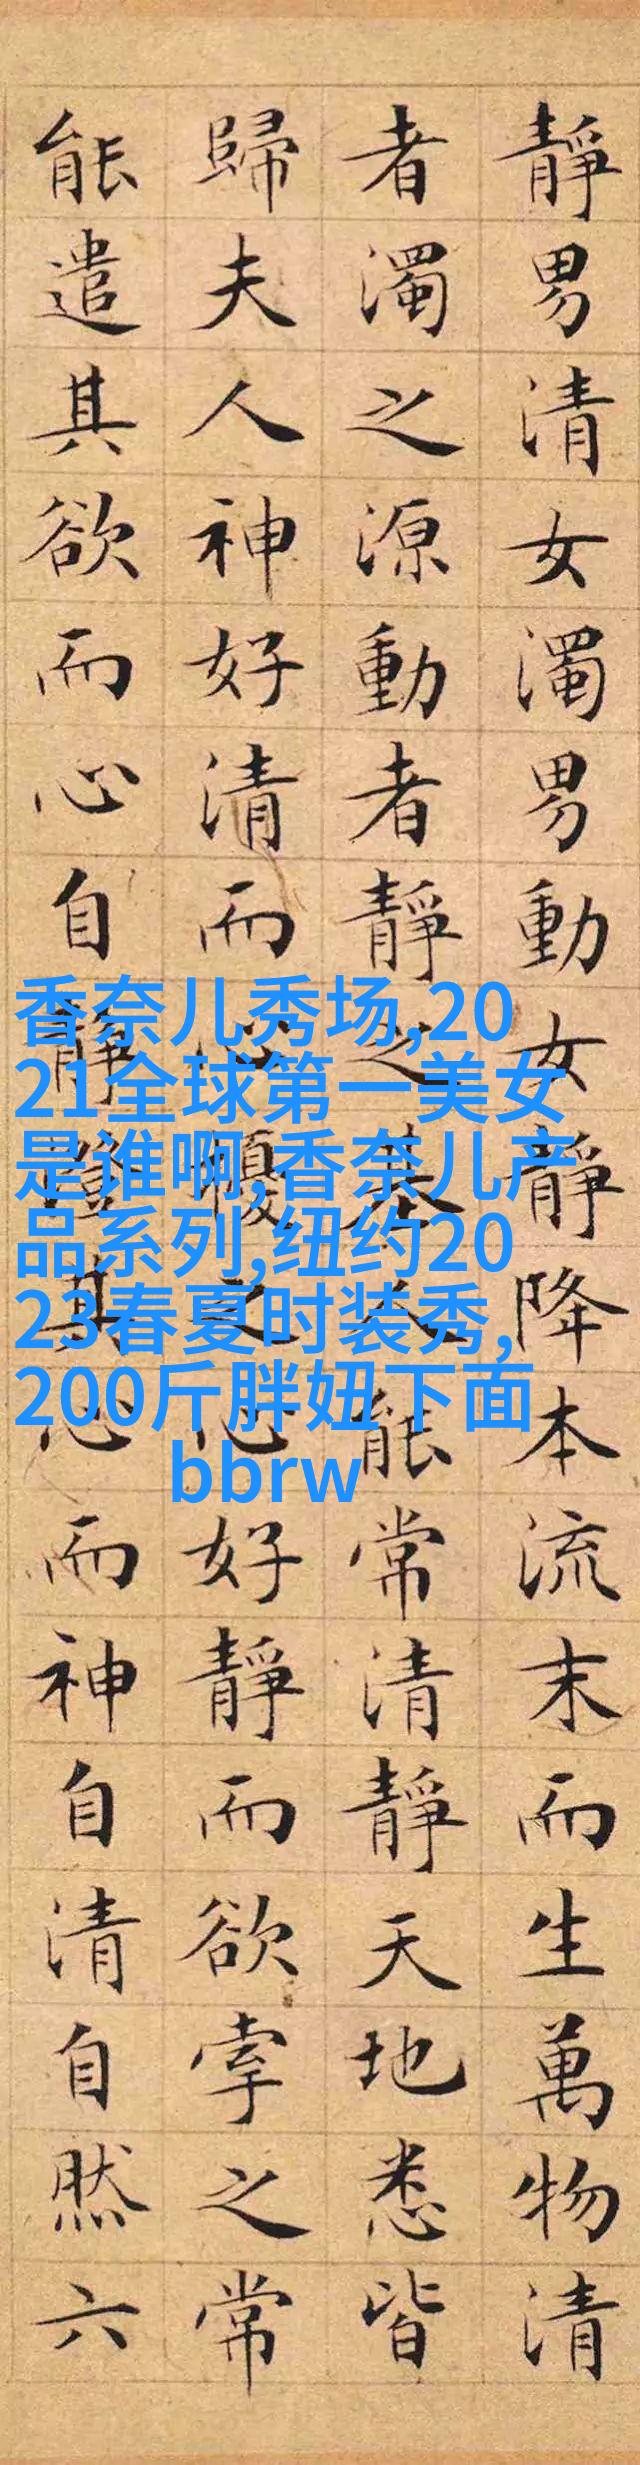 靜男清女濁男動女靜降本流末而生萬物清
者濁之源動者靜之基人能常清靜天地悉皆
歸夫人神好清而心擾之心好靜而欲牽之常
能遣其欲而心自靜澄其心而神自清自然六
香奈儿秀场,20
21全球第一美女
是谁啊,香奈儿产
品系列,纽约20
23春夏时装秀,
200斤胖妞下面
bbrw